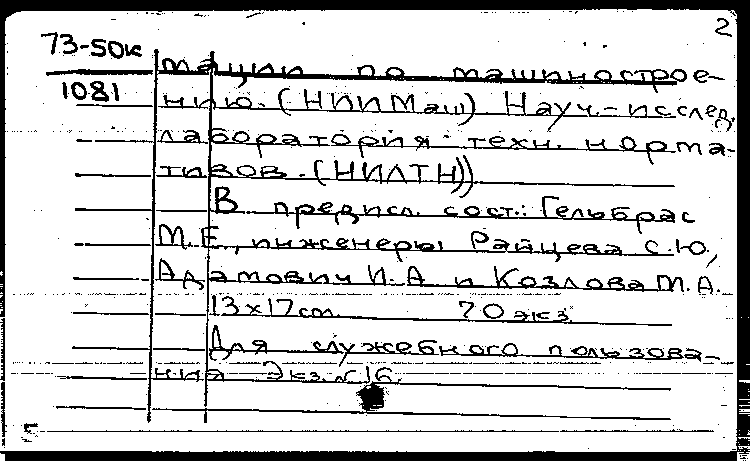 2
73-50к
1081
мации по машинострое-
нию. (НИИМаш) Науч.-исслед.
лаборатория техн. норма-
тивов. (НИЛТН))
В предисл. сост.: Гельбрас
М.Е., инженеры Райцева С.Ю.,
Адамович И.А. и Козлова М.А.
13х17см. 70 экз.
Для служебного пользова-
ния Экз. №16.